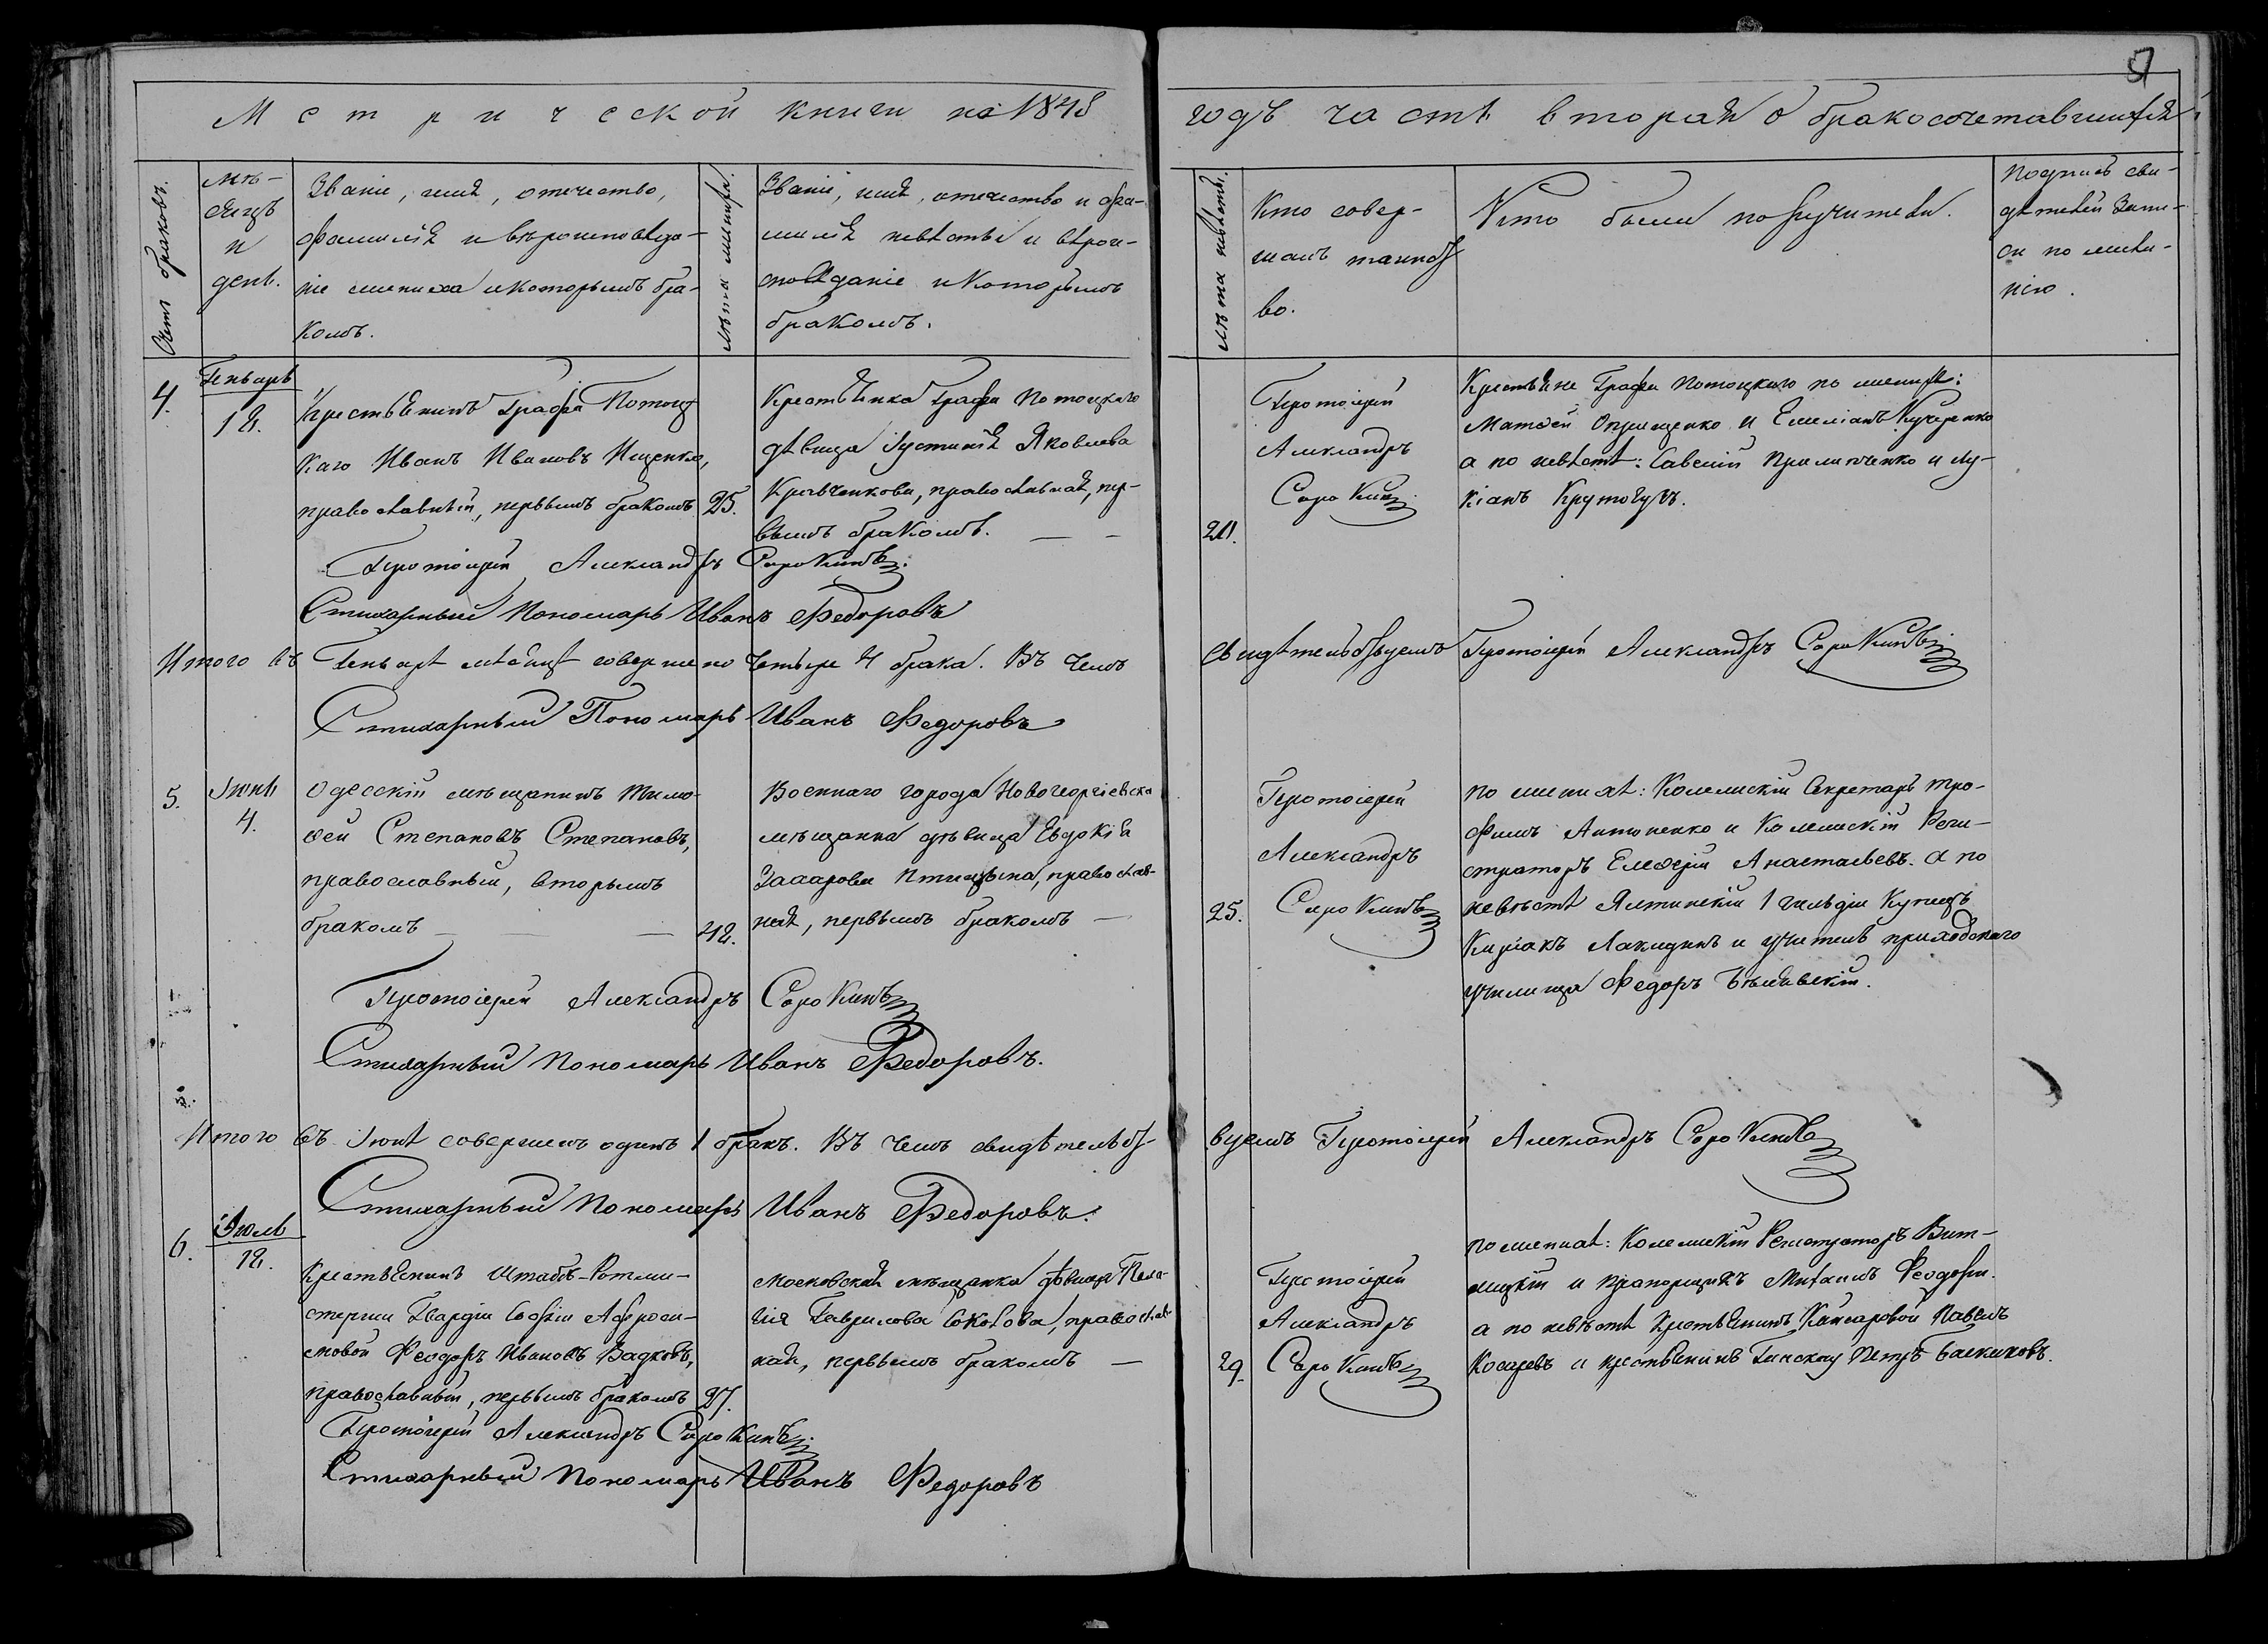 Метрической книги на 1848
годъ часть вторая о бракосочетавшихся
Счетъ браковъ.
Мѣ-
сяцъ
и
день.
Званіе, имя, отечество,
фамилія и вѣроисповѣда-
ніе жениха и которымъ бра-
комъ.
Лѣта жениха.
Званіе, имя, отечество и фа-
милія невѣсты и вѣрои-
сповѣданіе и которымъ
бракомъ.
Лѣта невѣсты.
Кто совер-
шалъ таинст
во.
Кто были поручители.
Подпись сви-
дѣтелей запи-
си по жела-
нію.
4.
Генварь
18.
Крестьянинъ Графа Потоц
каго Иванъ Ивановъ Ищенко,
православный, первымъ бракомъ.
25.
Крестьянка Графа Потоцкаго
дѣвица Іустинія Яковлева
Кравченкова, православная, пер-
вымъ бракомъ.
Протоіерей
Александръ
Сорокинъ
Крестьяне Графа Потоцкаго по женихѣ:
Матѳей Онищенко и Емеліанъ Кучеренко
а по невѣстѣ: Савелій Прилипченко и Лу-
кіанъ
Протоіерей Александръ Сорокинъ
Стихарный Пономарь Иванъ Федоровъ
Итого въ Генварѣ мѣсяцѣ совершено четыре 4 брака. Въ чемъ
свидѣтельствуемъ Протоіерей Александръ Сорокинъ
Стихарный Пономарь Иванъ Федоровъ
5.
Іюнь
4.
Одесскій мѣщанинъ Тимо-
ѳей Степановъ Степановъ,
православный, вторымъ
бракомъ
42.
Военнаго города Новогеоргіевска
мѣщанка дѣвица Евдокія
Захарова Птицына, православ-
ная, первымъ бракомъ
25.
Протоіерей
Александръ
Сорокинъ
по женихѣ: Колежскій Секретарь Тро-
фимъ Антоненко и Колежскій Реги-
страторъ Елеѳерій Анастасьевъ. а по
невѣстѣ Ялтинскій 1 гильдіи Купецъ
Киріакъ и учитель приходскаго
училища Федоръ Бѣлявскій.
Протоіерей Александръ Сорокинъ
Стихарный Пономарь Иванъ Федоровъ.
Итого въ Іюнѣ совершенъ одинъ 1 бракъ. Въ чемъ свидѣтельст-
вуемъ Протоіерей Александръ Сорокинъ
Стихарный Пономарь Иванъ Федоровъ.
6.
Іюль
18.
Крестьянинъ Штабъ-Ротми-
стерши Гвардіи Софіи Афроси-
мовой Феодоръ Ивановъ Вадковъ,
православный, первымъ бракомъ
27.
Московская мѣщанка дѣвица Пела-
гія Гаврилова Соколова, православ-
ная, первымъ бракомъ
29.
Протоіерей
Александръ
Сорокинъ
по женихѣ: Колежскій Регистраторъ Вит-
и прапорщикъ Михаилъ
а по невѣстѣ Крестьянинъ Кайсаровой Павелъ
Косаревъ и крестьянинъ Петръ
Протоіерей Александръ Сорокинъ
Стихарный Пономарь Иванъ Федоровъ